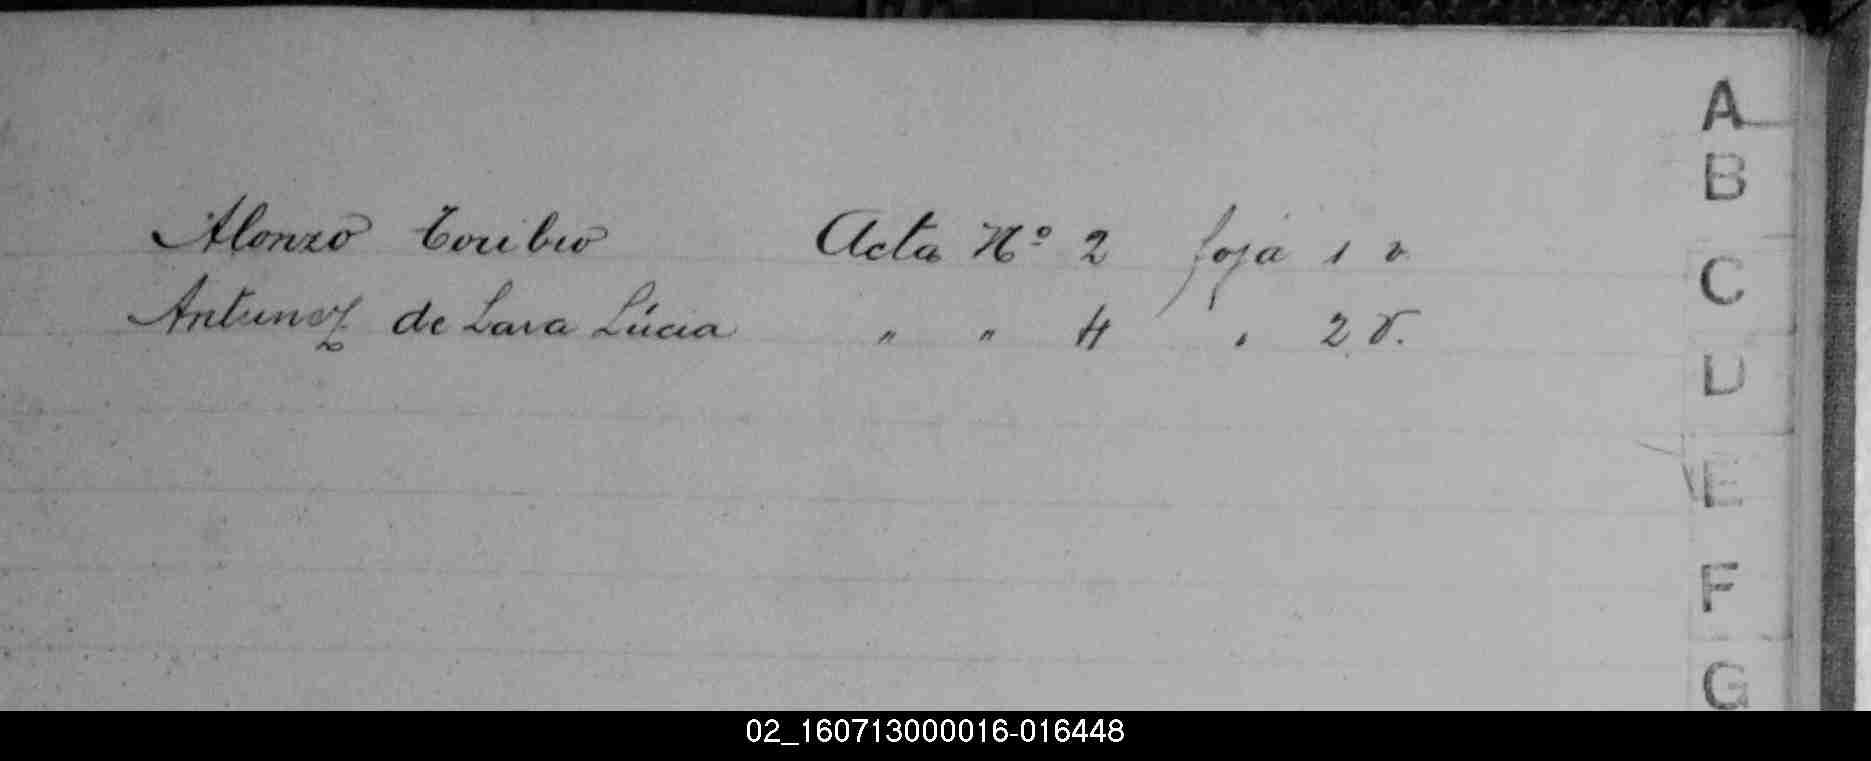 A
B
Alonzo Toribio Acta Nº 2 foja 1 v.
C
Antunez de Lara Lúcia " " 4 " 2 v.
D
E
F
G
02_160713000016-016448